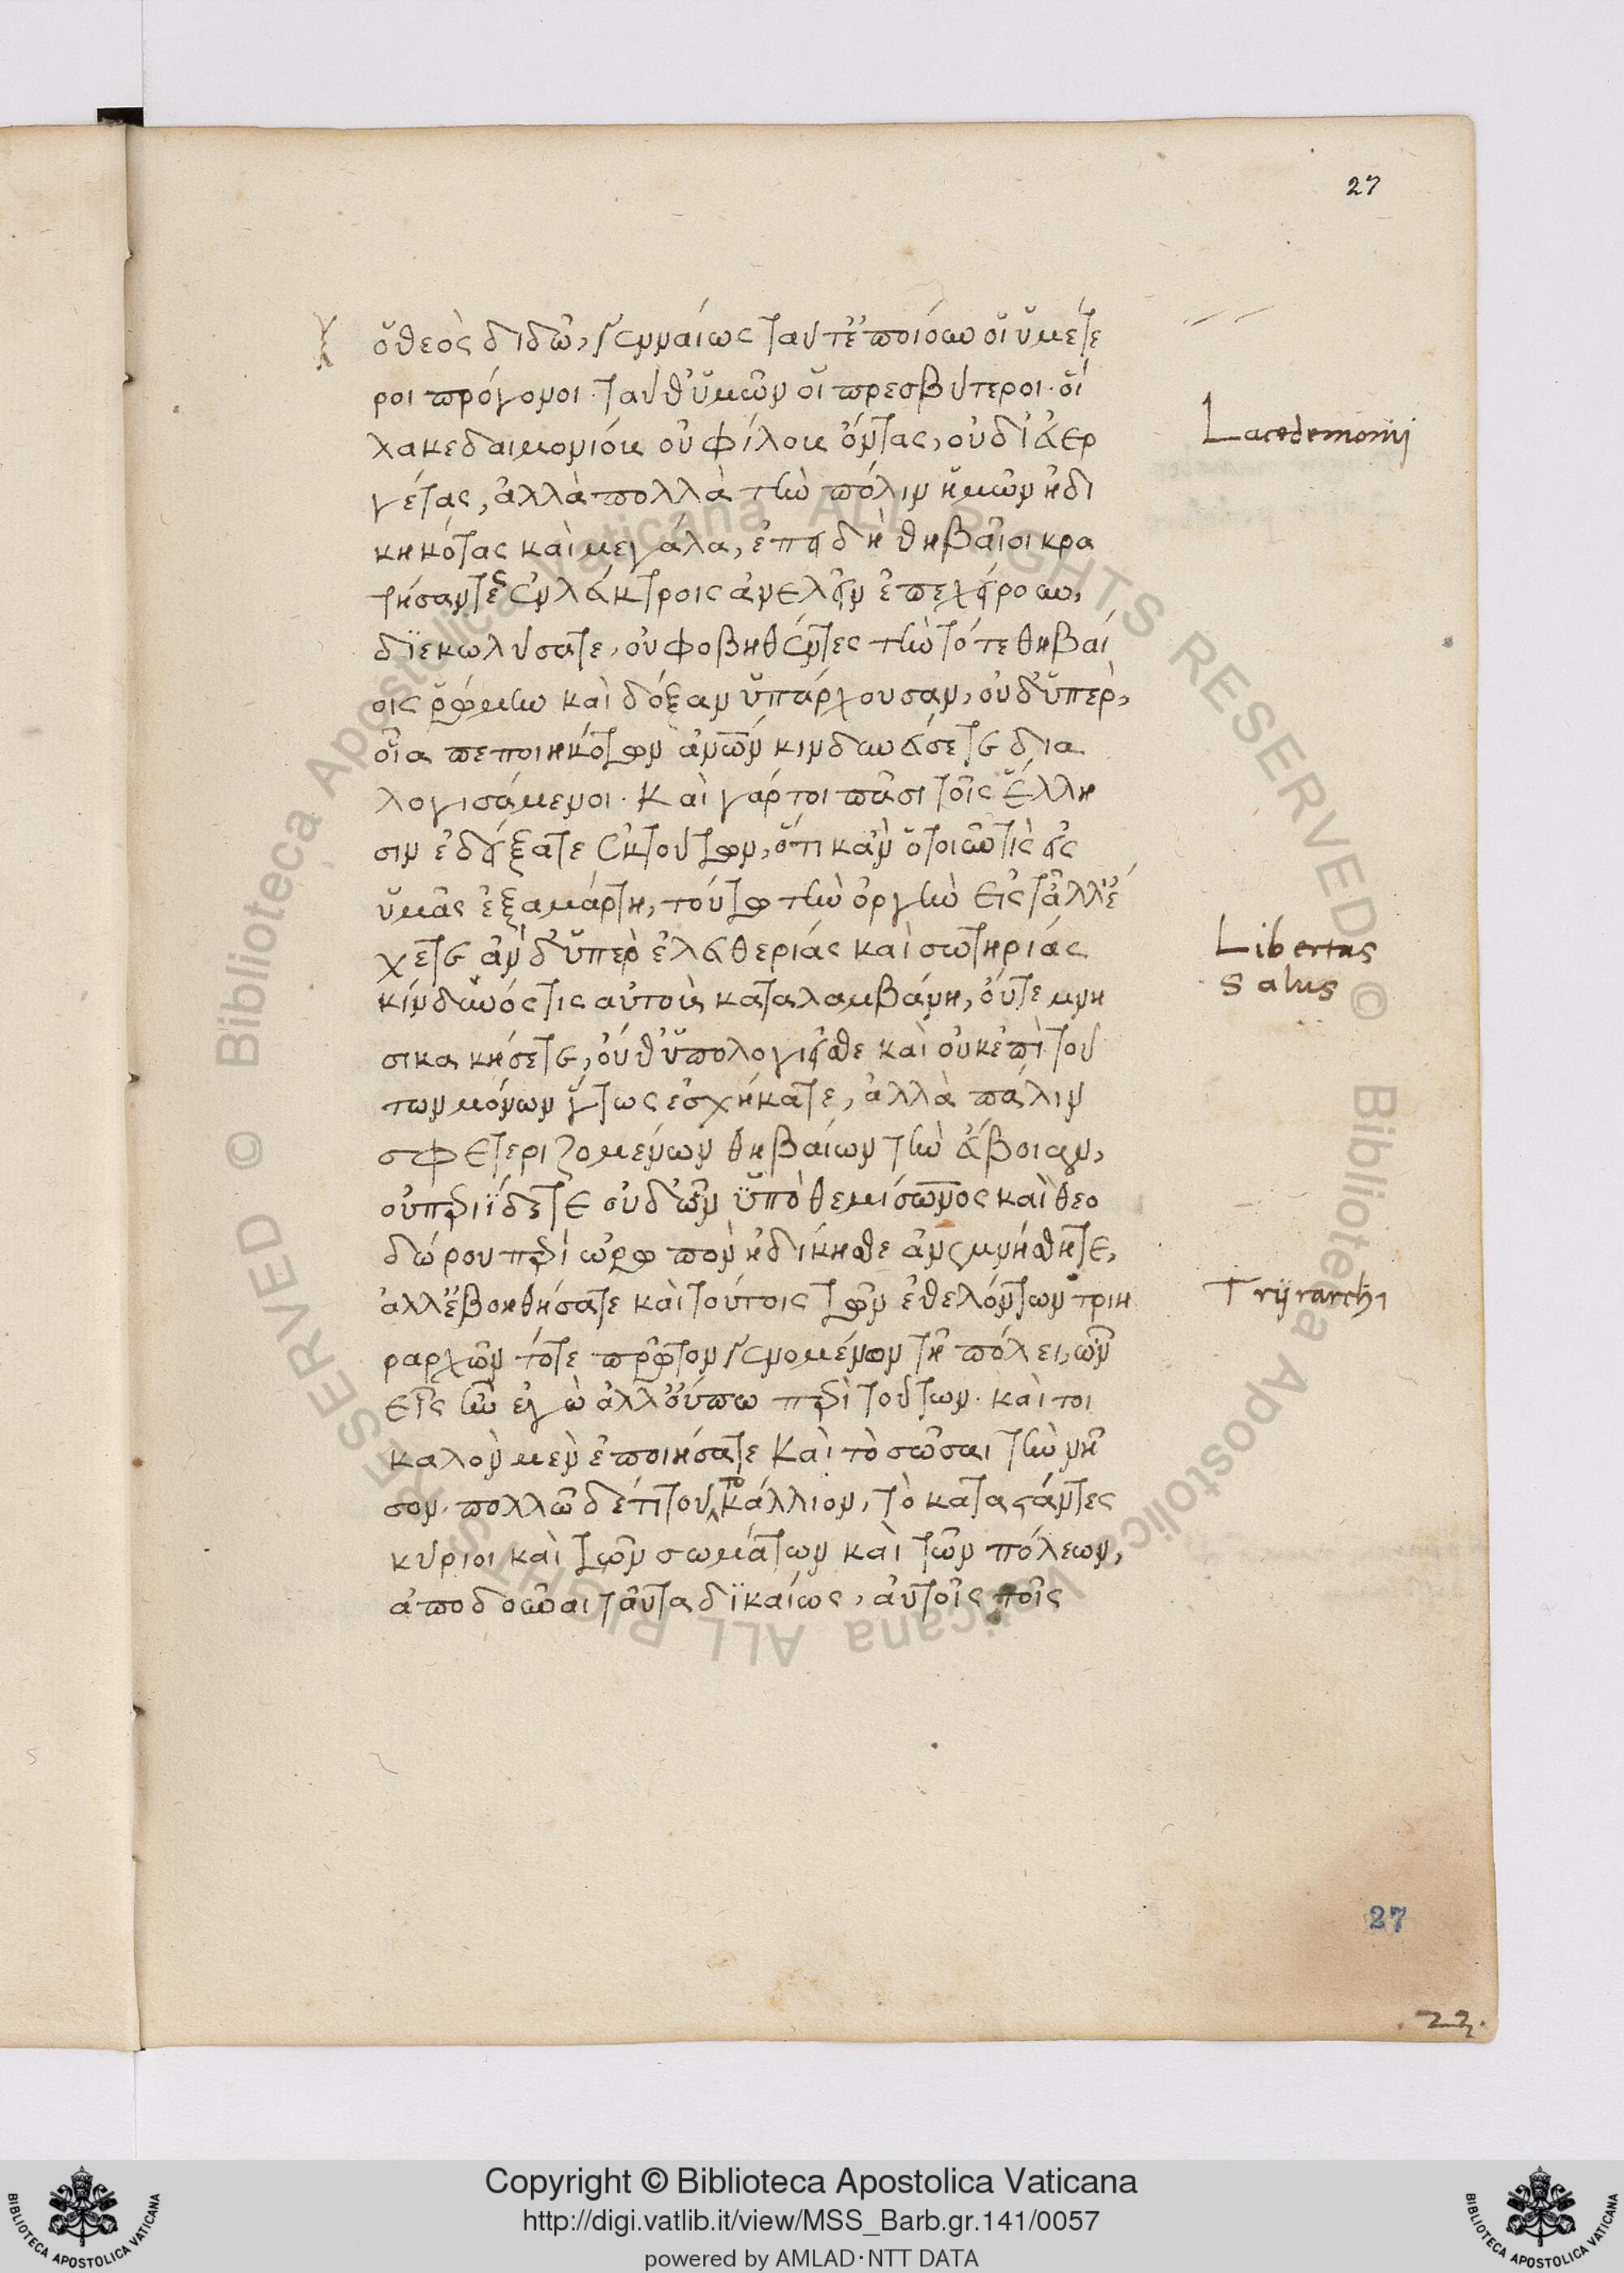 27
ὁ θεὸς διδῷ, γενναίως ταῦτ' ἐποίουν οἱ ὑμέτε
ροι πρόγονοι. ταῦθ' ὑμῶν οἱ πρεσβύτεροι. οἳ
λακεδαιμονίους οὐ φίλους ὄντας, οὐδ' εὐερ
γέτας, ἀλλὰ πολλὰ τὴν πόλιν ἡμῶν ἠδι
κηκότας καὶ μεγάλα, ἐπειδὴ θηβαῖοι κρα
τήσαντες ἐν λεύκτροις ἀνελεῖν ἐπεχείρουν,
διεκωλύσατε, οὐ φοβηθέντες τὴν τότε θηβαί
οις ῥώμην καὶ δόξαν ὑπάρχουσαν, οὐδ' ὑπὲρ,
οἷα πεποιηκότων ἀνῶν κινδυνεύσετε δια
λογισάμενοι. Καὶ γάρ τοι πᾶσι τοῖς Ἕλλη
σιν ἐδείξατε ἐκ τούτων, ὅτι κἂν ὁτιοῦν τὶς εἰς
ὑμᾶς ἐξαμάρτῃ, τούτων τὴν ὀργὴν εἰς τἆλλ' ἔ
χετε ἂν δ' ὑπὲρ ἐλευθερίας καὶ σωτηρίας
κίνδυνός τις αὐτοὺς καταλαμβάνῃ, οὔτε μνη
σικακήσετε, οὔθ' ὑπολογεῖσθε καὶ οὐκ ἐπὶ τού
των μόνων οὕτως ἐσχήκατε, ἀλλὰ πάλιν
σφετεριζομένων θηβαίων τὴν εὔβοιαν,
οὐ περιΐδετε οὐδ' ὧν ὑπὸ θεμίσωνος καὶ θεο
δώρου περὶ ὠρωπὸν ἠδίκησθε ἀνεμνήσθητε,
ἀλλ' ἐβοηθήσατε καὶ τούτοις τῶν ἐθελόντων τριη
ραρχῶν τότε πρῶτον γενομένων τῇ πόλει, ὧν
εἷς ἦν ἐγὼ ἀλλ' οὔπω περὶ τούτων. καὶ τοι
καλὸν μὲν ἐποιήσατε Καὶ τὸ σῶσαι τὴν νῆ
σον. πολλῷ δ' ἔτι τούτο κάλλιον, τὸ καταστάντες
κύριοι καὶ τῶν σωμάτων καὶ τῶν πόλεων,
ἀποδοῦναι ταῦτα δικαίως, αὐτοῖς τοῖς
Lacedemonij
Libertas
Salus
Trijrarchi
27
22.
Copyright © Biblioteca Apostolica Vaticana
http://digi.vatlib.it/view/MSS_Barb.gr.141/0057
powered by AMLAD·NTT DATA